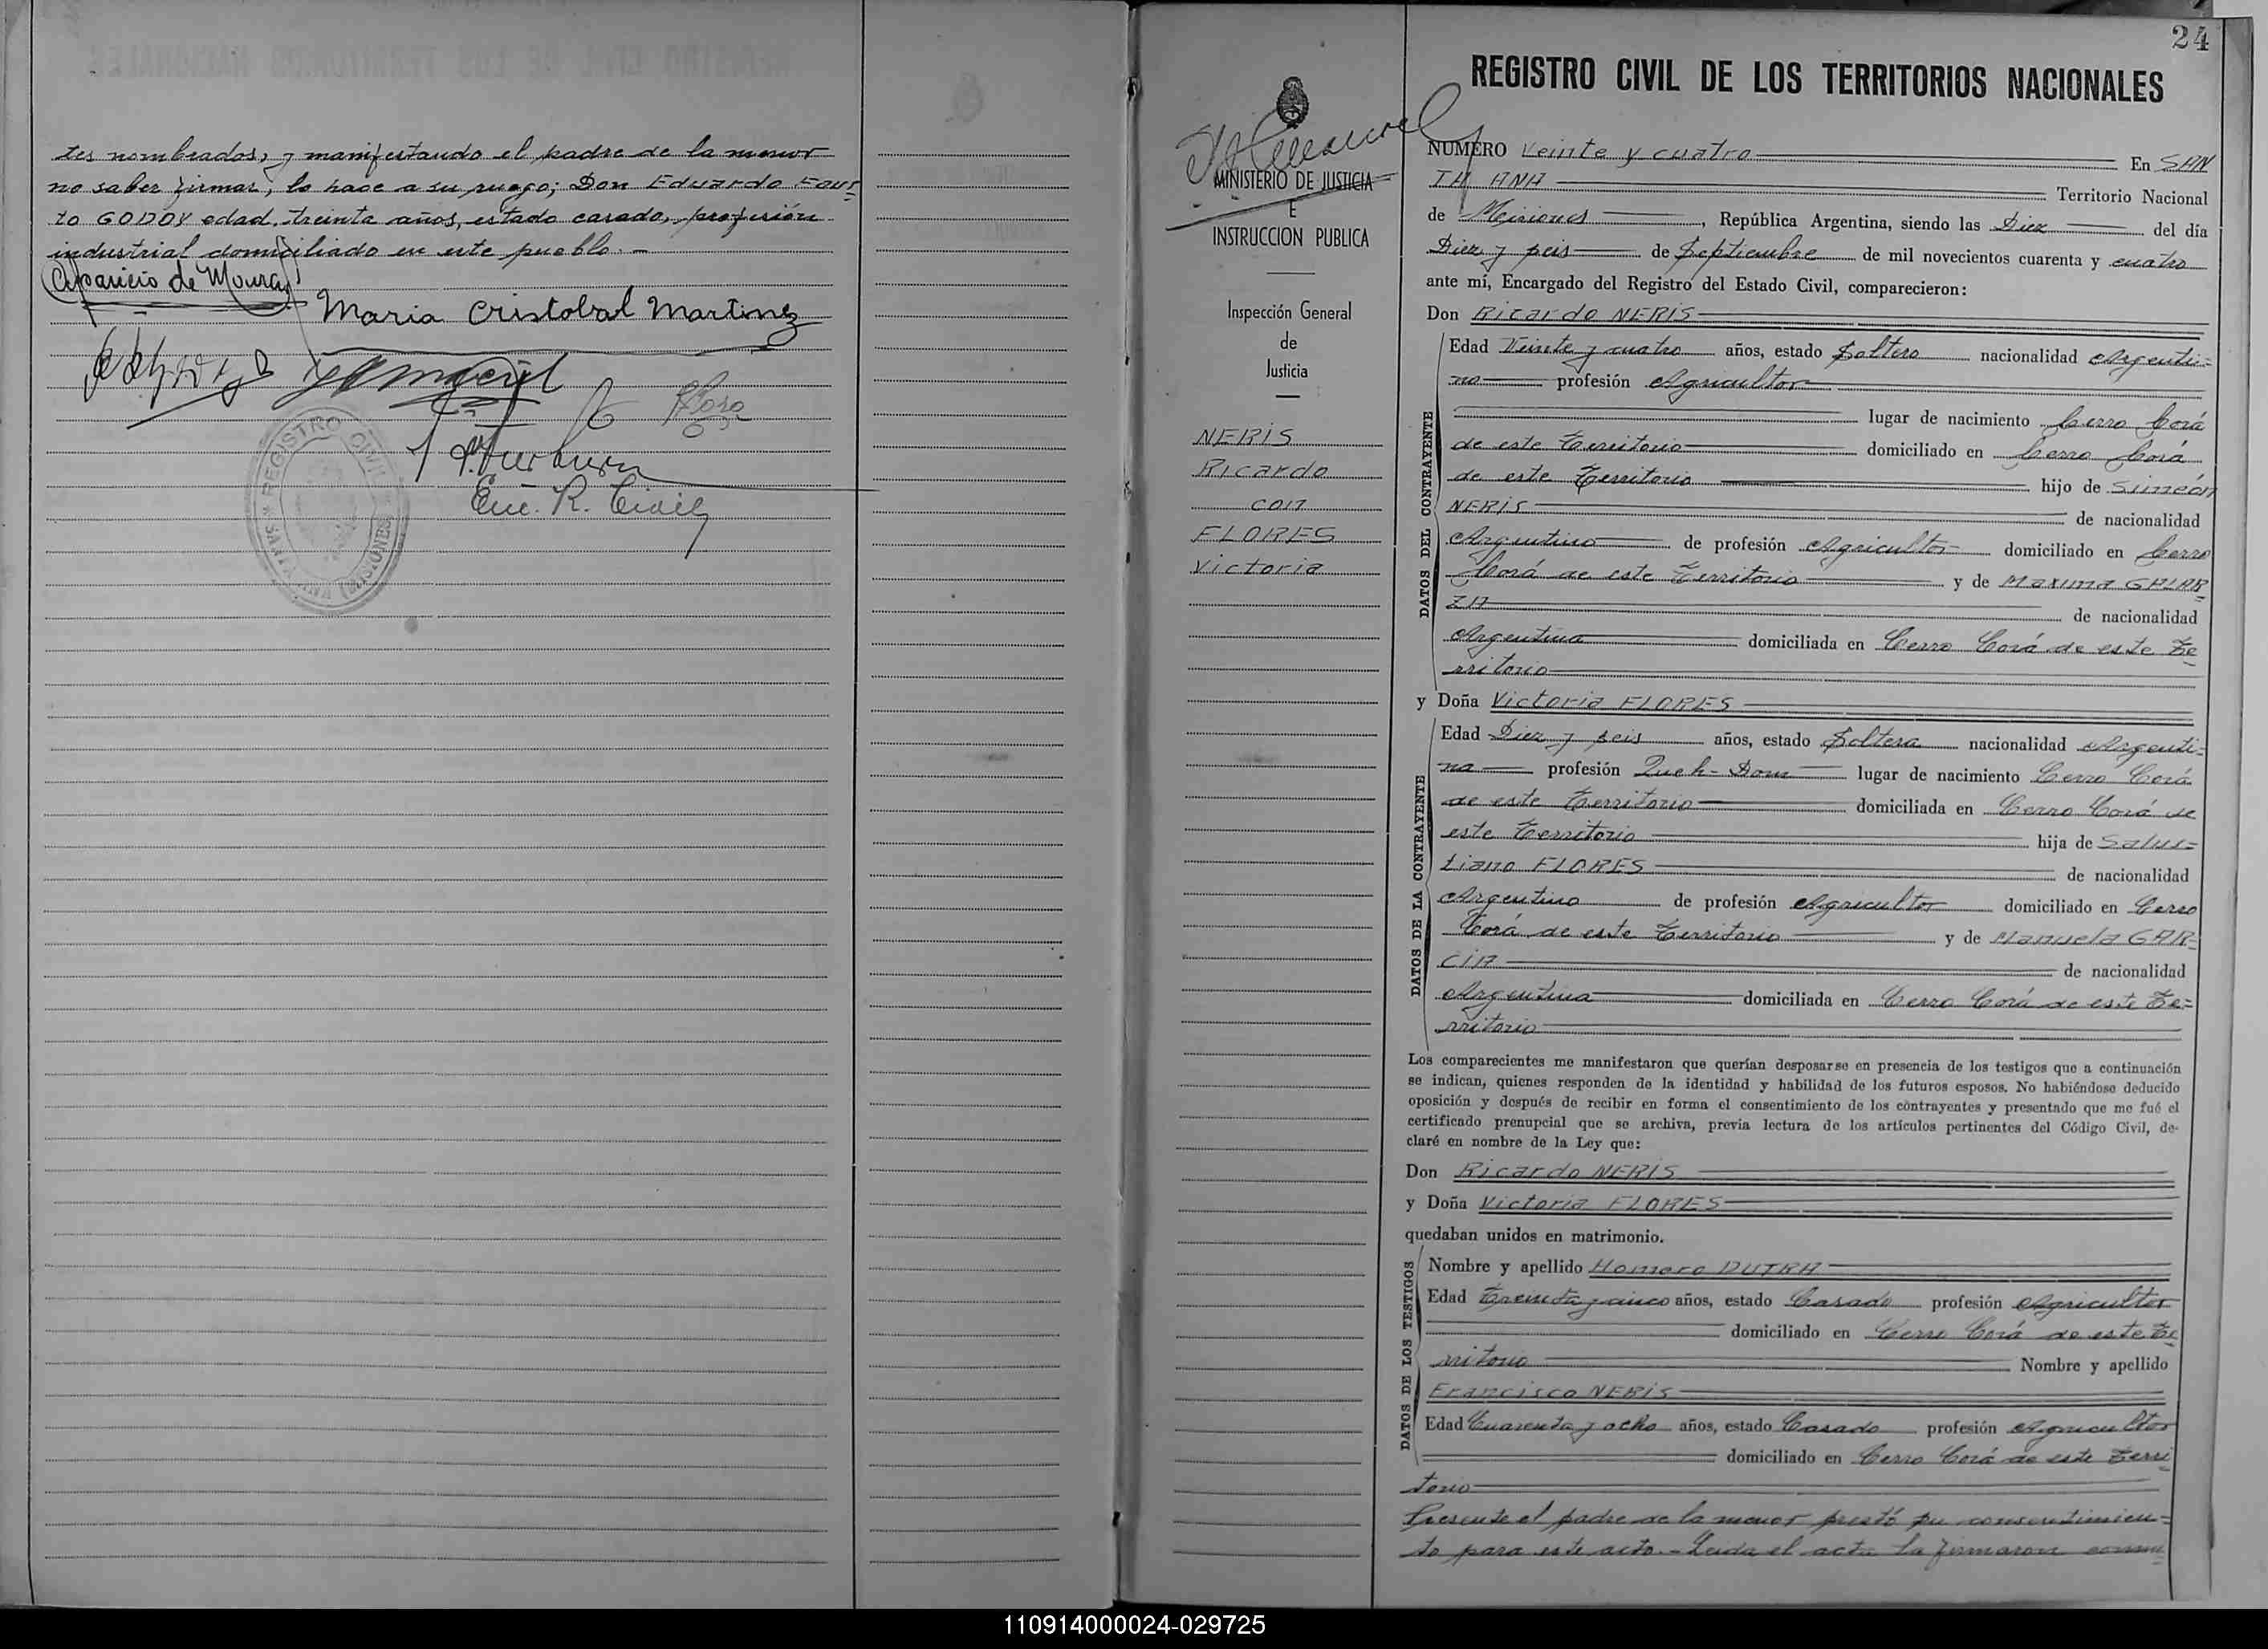 tes nombrados, y manifestando el padre de la menor
no saber firmar, lo hace a su ruego; Don Eduardo Faus-
to GODOY edad treinta años, estado casado, profesión
industrial domiciliado en este pueblo. —
Aparicio de Moura
Maria Cristobal Martinez
Enc. R. Civil
REGISTRO CIVIL
SANTA ANA (MISIONES)
MINISTERIO DE JUSTICIA
E
INSTRUCCION PUBLICA
Inspección General
de
Justicia
NERIS
Ricardo
con
FLORES
Victoria
24
REGISTRO CIVIL DE LOS TERRITORIOS NACIONALES
NUMERO Veinte y cuatro En SAN
TA ANA Territorio Nacional
de Misiones, República Argentina, siendo las Diez del día
Diez y seis de Septiembre de mil novecientos cuarenta y cuatro
ante mí, Encargado del Registro del Estado Civil, comparecieron:
Don Ricardo NERIS
DATOS DEL CONTRAYENTE
Edad Veinte y cuatro años, estado Soltero nacionalidad Argenti-
no profesión Agricultor
lugar de nacimiento Cerro Corá
de este Territorio domiciliado en Cerro Corá
de este Territorio hijo de Simeón
NERIS de nacionalidad
Argentino de profesión Agricultor domiciliado en Cerro
Corá de este Territorio y de Maxima GALAR-
ZA de nacionalidad
Argentina domiciliada en Cerro Corá de este Te-
rritorio
y Doña Victoria FLORES
DATOS DE LA CONTRAYENTE
Edad Diez y seis años, estado Soltera nacionalidad Argenti-
na profesión Queh-Dom lugar de nacimiento Cerro Corá
de este Territorio domiciliada en Cerro Corá de
este Territorio hija de Salus-
tiano FLORES de nacionalidad
Argentino de profesión Agricultor domiciliado en Cerro
Corá de este Territorio y de Manuela GAR-
CIA de nacionalidad
Argentina domiciliada en Cerro Corá de este Te-
rritorio
Los comparecientes me manifestaron que querían desposarse en presencia de los testigos que a continuación
se indican, quienes responden de la identidad y habilidad de los futuros esposos. No habiéndose deducido
oposición y después de recibir en forma el consentimiento de los contrayentes y presentado que me fué el
certificado prenupcial que se archiva, previa lectura de los artículos pertinentes del Código Civil, de-
claré en nombre de la Ley que:
Don Ricardo NERIS
y Doña Victoria FLORES
quedaban unidos en matrimonio.
DATOS DE LOS TESTIGOS
Nombre y apellido Homero DUTRA
Edad Treinta y cinco años, estado Casado profesión Agricultor
domiciliado en Cerro Corá de este Te
rritorio Nombre y apellido
Francisco NERIS
Edad Cuarenta y ocho años, estado Casado profesión Agricultor
domiciliado en Cerro Corá de este Terri
torio
Presente el padre de la menor prestó su consentimien-
to para este acto. - Leída el acta la firmaron
110914000024-029725